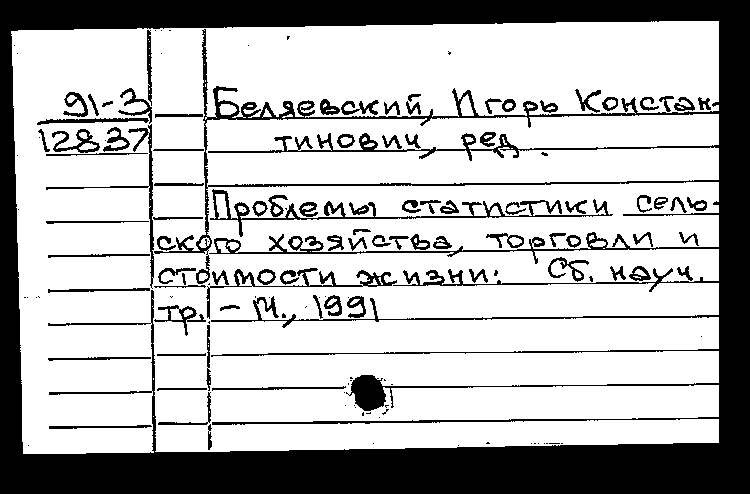 91-3
12837
Беляевский, Игорь Констан-
тинович, ред.
Проблемы статистики сель-
ского хозяйства, торговли и
стоимости жизни: Сб. науч.
тр. – М., 1991